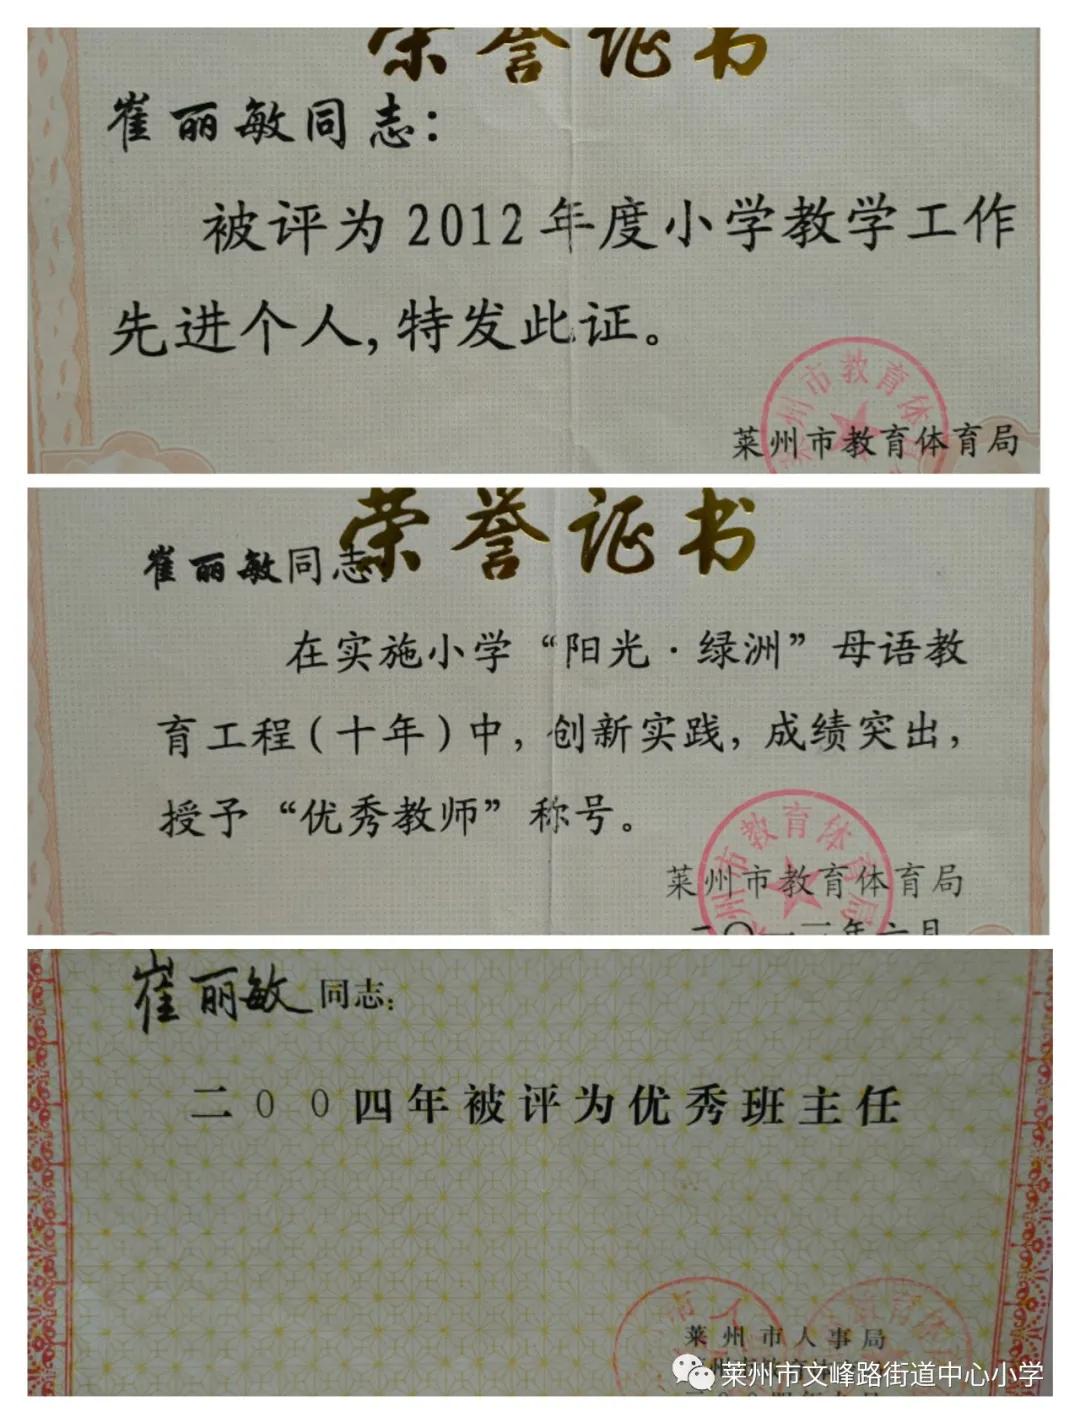 荣誉证书
崔丽敏同志：
被评为2012年度小学教学工作
先进个人，特发此证。
莱州市教育体育局
莱州市教育体
荣誉证书
崔丽敏同志：
在实施小学“阳光·绿洲”母语教
育工程（十年）中，创新实践，成绩突出，
授予“优秀教师”称号。
莱州市教育体育局
州市教育体育局
崔丽敏同志：
二〇〇四年被评为优秀班主任
莱州市人事局
莱州市文峰路街道中心小学